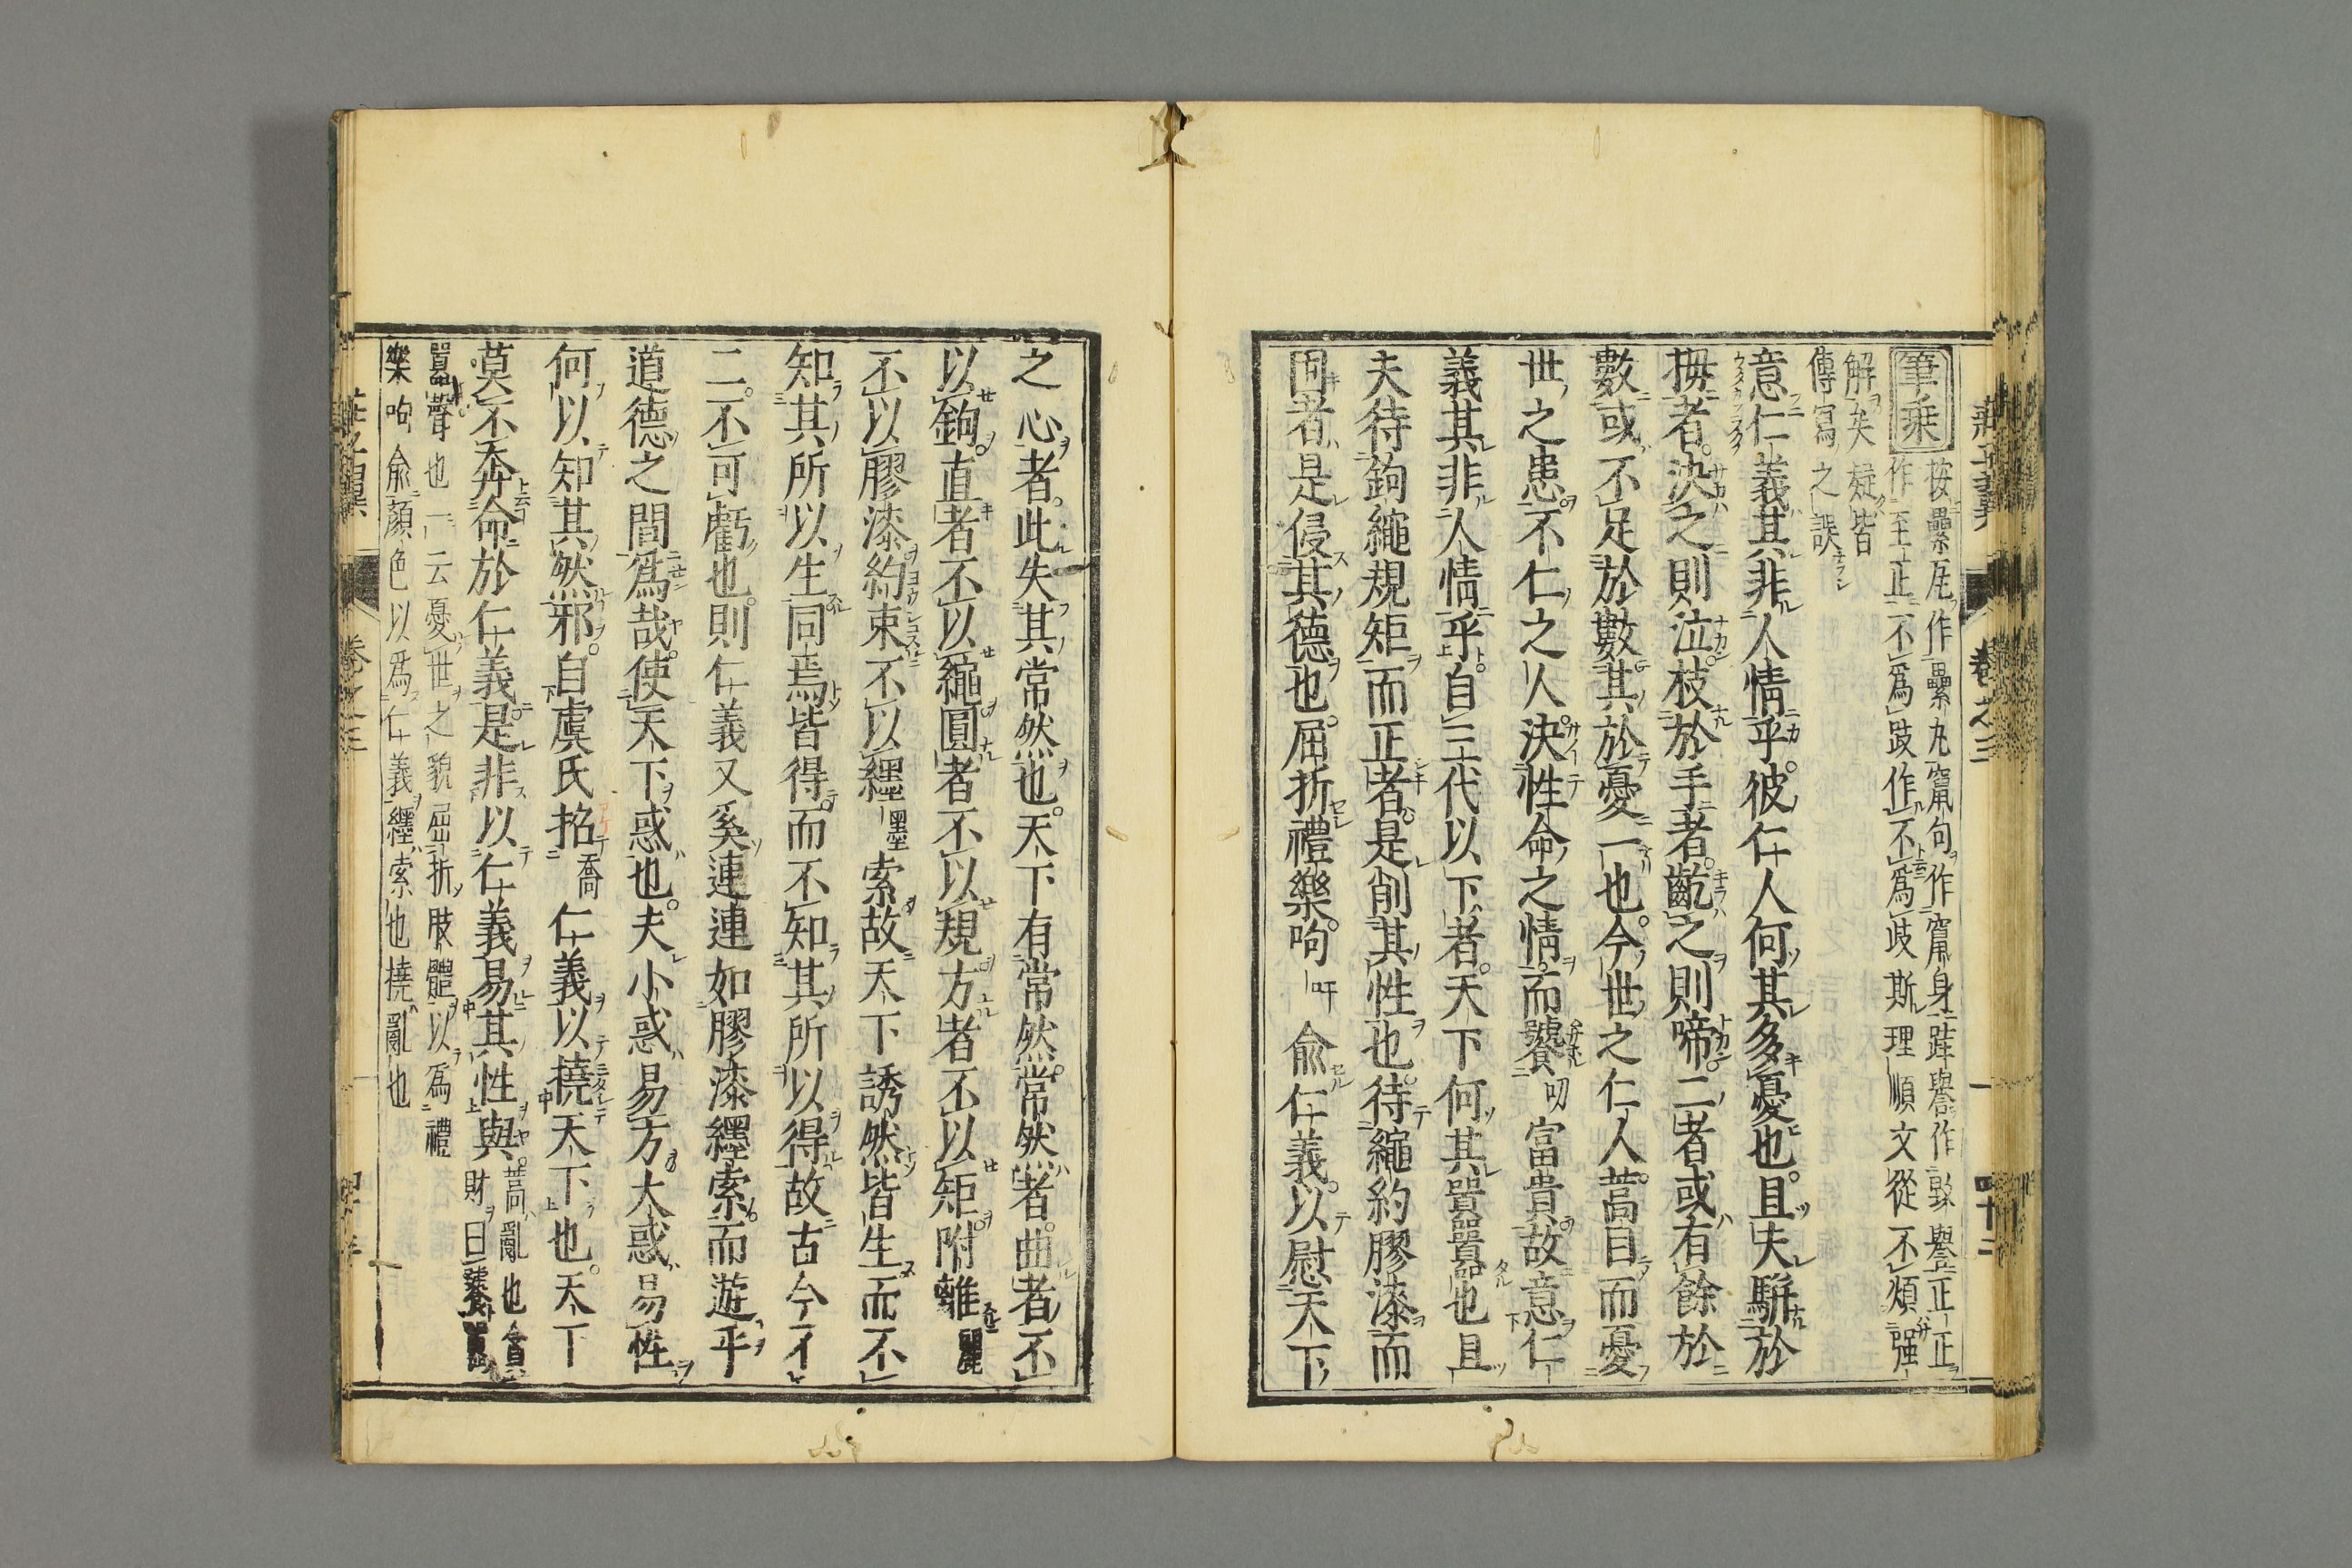 筆乗
按纍瓦作纍丸竄句作竄身跬譽作毀譽正正
作至正不爲跂作不爲歧斯理順文從不煩强
解矣疑皆
傳寫之誤
意仁義其非人情乎彼仁人何其多憂也且夫駢於
拇者決之則泣枝於手者齕之則啼二者或有餘於
數或不足於數其於憂一也今世之仁人蒿目而憂
世之患不仁之人決性命之情而饕叨富貴故意仁
義其非人情乎自三代以下者天下何其囂囂也且
夫待鉤繩規矩而正者是削其性也待繩約膠漆而
固者是侵其德也屈折禮樂呴吁俞仁義以慰天下
之心者此失其常然也天下有常然常然者曲者不
以鉤直者不以繩圓者不以規方者不以矩附離麗
不以膠漆約束不以纆墨索故天下誘然皆生而不
知其所以生同焉皆得而不知其所以得故古今不
二不可虧也則仁義又奚連連如膠漆纆索而遊乎
道德之間爲哉使天下惑也夫小惑易方大惑易性
何以知其然邪自虞氏招喬仁義以撓天下也天下
莫不奔命於仁義是非以仁義易其性與蒿亂也貪
財曰饕囂
囂聲也一云憂世之貌屈折肢體以爲禮
樂呴俞顏色以爲仁義纆索也撓亂也
卷之三
四十二